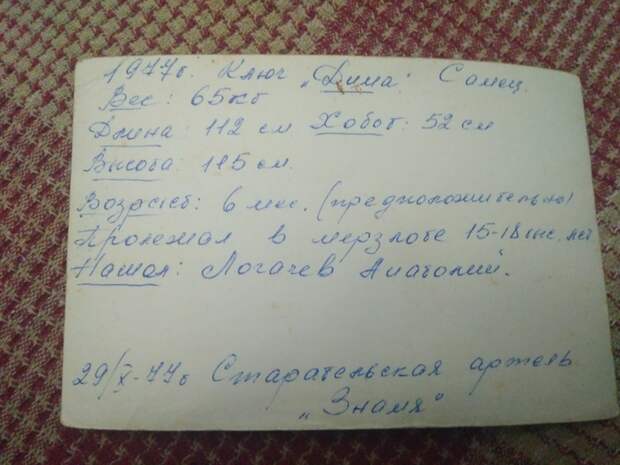 1977г. Ключ „Дима" Самец.
Вес: 65кг
Длина: 112 см Хобот: 52 см
Высота: 115 см.
Возраст: 6 мес. (предположительно)
Пролежал в мерзлоте 15-18 тыс. лет
Нашел: Логачев Анатолий.
29/X-77г Старательская артель
„Знамя"